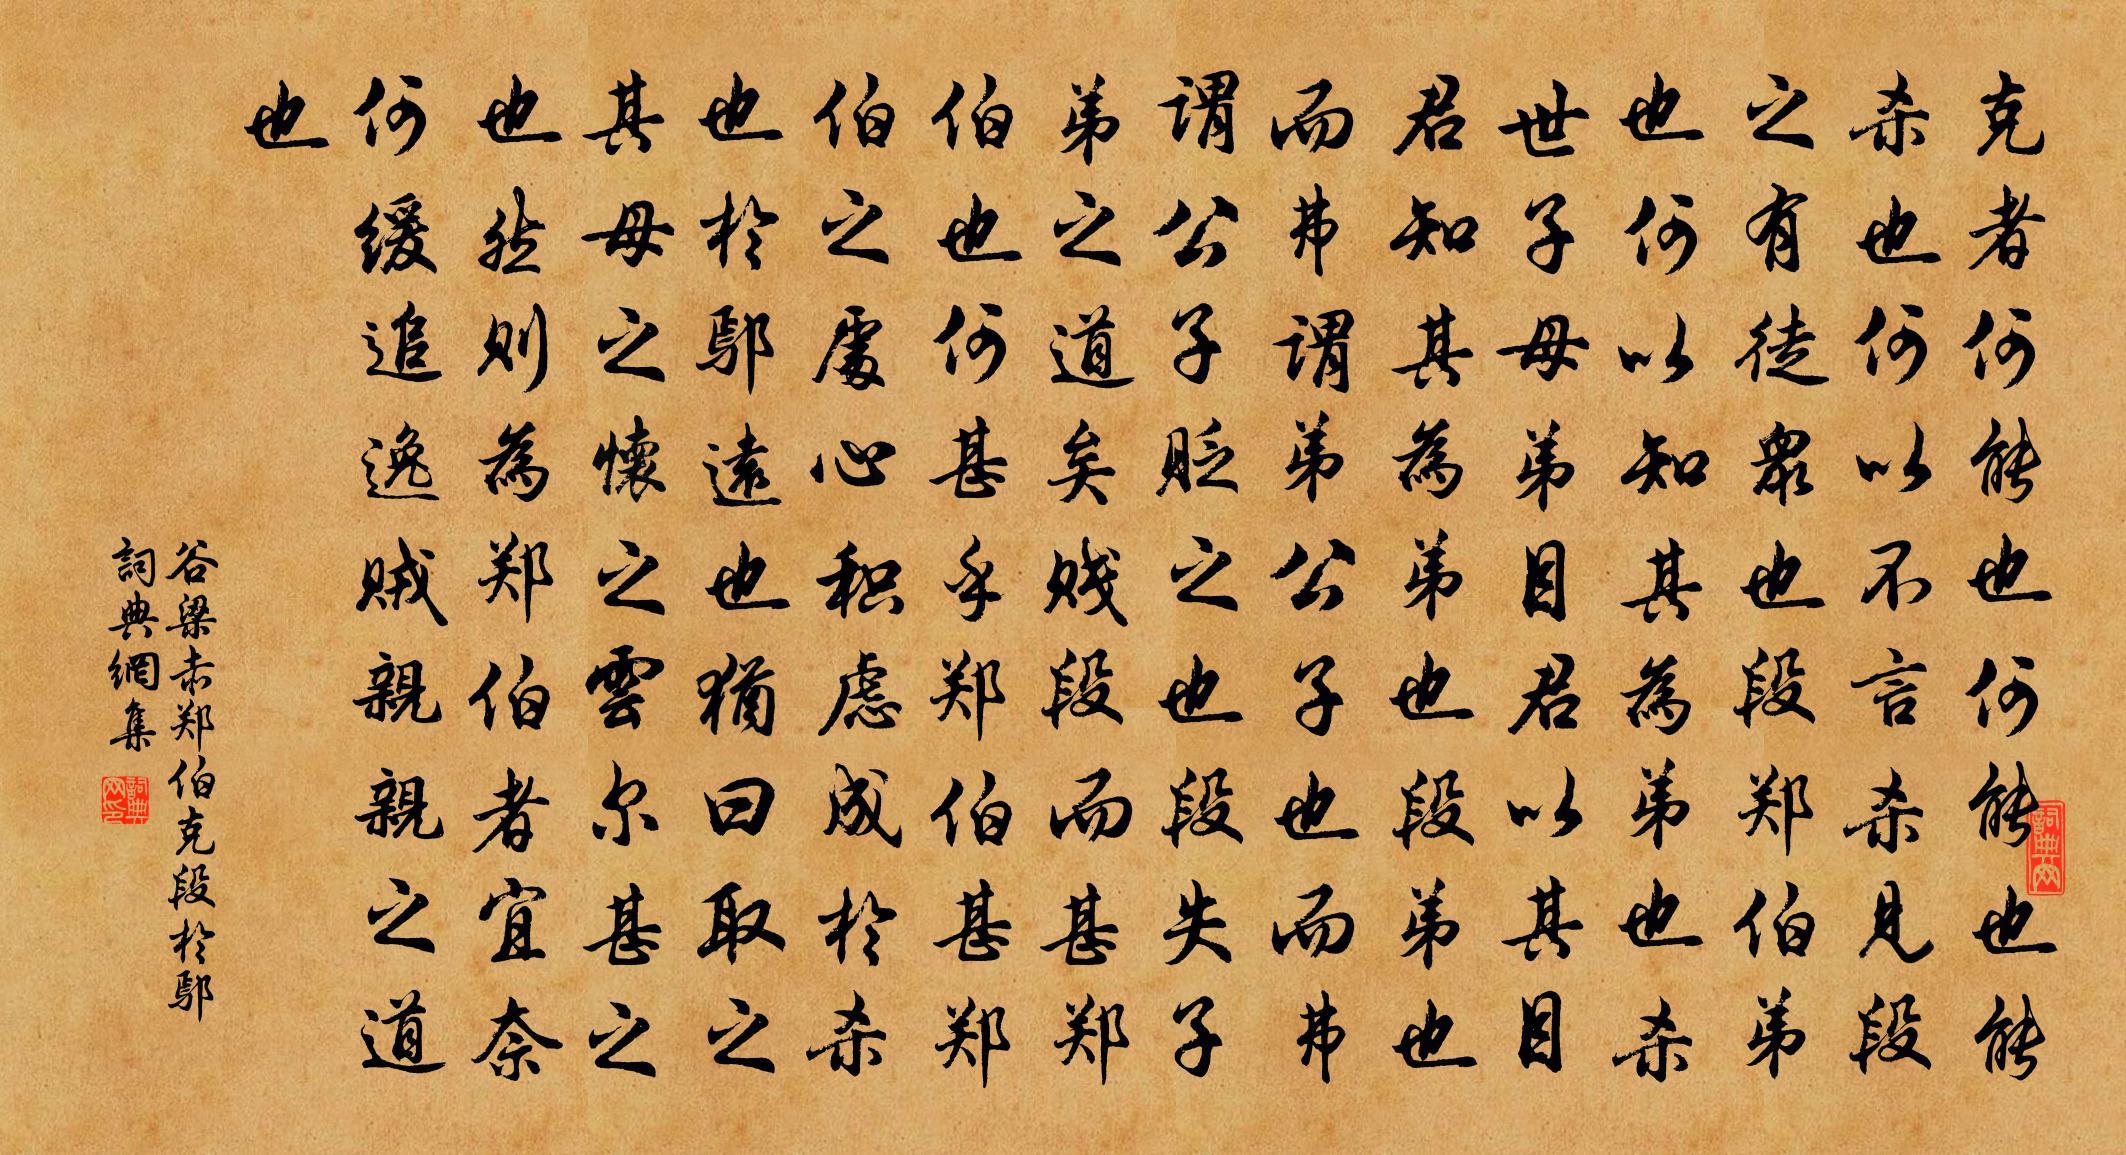 克者何能也何能也能
杀也何以不言杀見段
之有徒眾也段郑伯弟
也何以知其為弟也杀
世子母弟目君以其目
君知其為弟也段弟也
而弗謂弟公子也而弗
謂公子貶之也段失子
弟之道矣贱段而甚郑
伯也何甚乎郑伯甚郑
伯之處心积虑成於杀
也於鄢遠也猶曰取之
其母之懷之雲尔甚之
也然则為郑伯者宜奈
何缓追逸贼親親之道
也
谷梁赤郑伯克段於鄢
詞典網集
詞典網
詞典網印